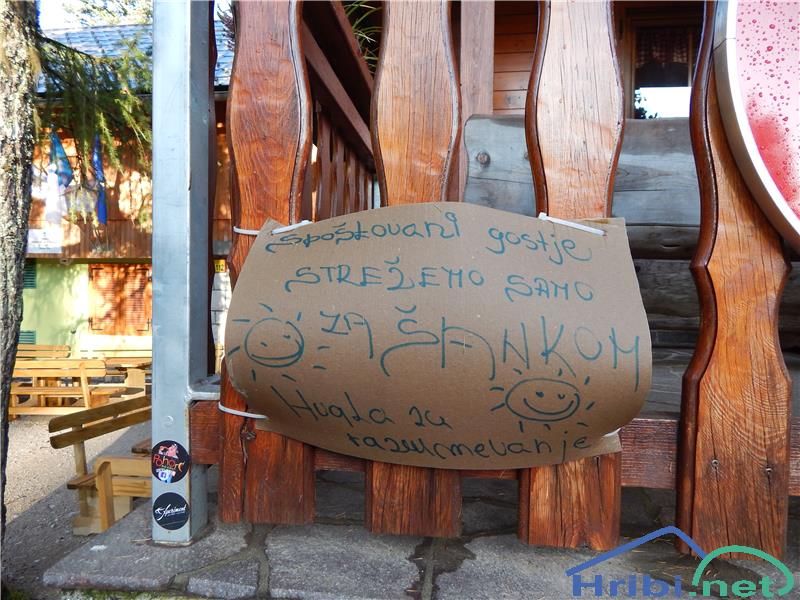 Spoštovani gostje
STREŽEMO SAMO
ZA ŠANKOM
Hvala za
razumevanje
Pohorc
Apartment
Hribi.net